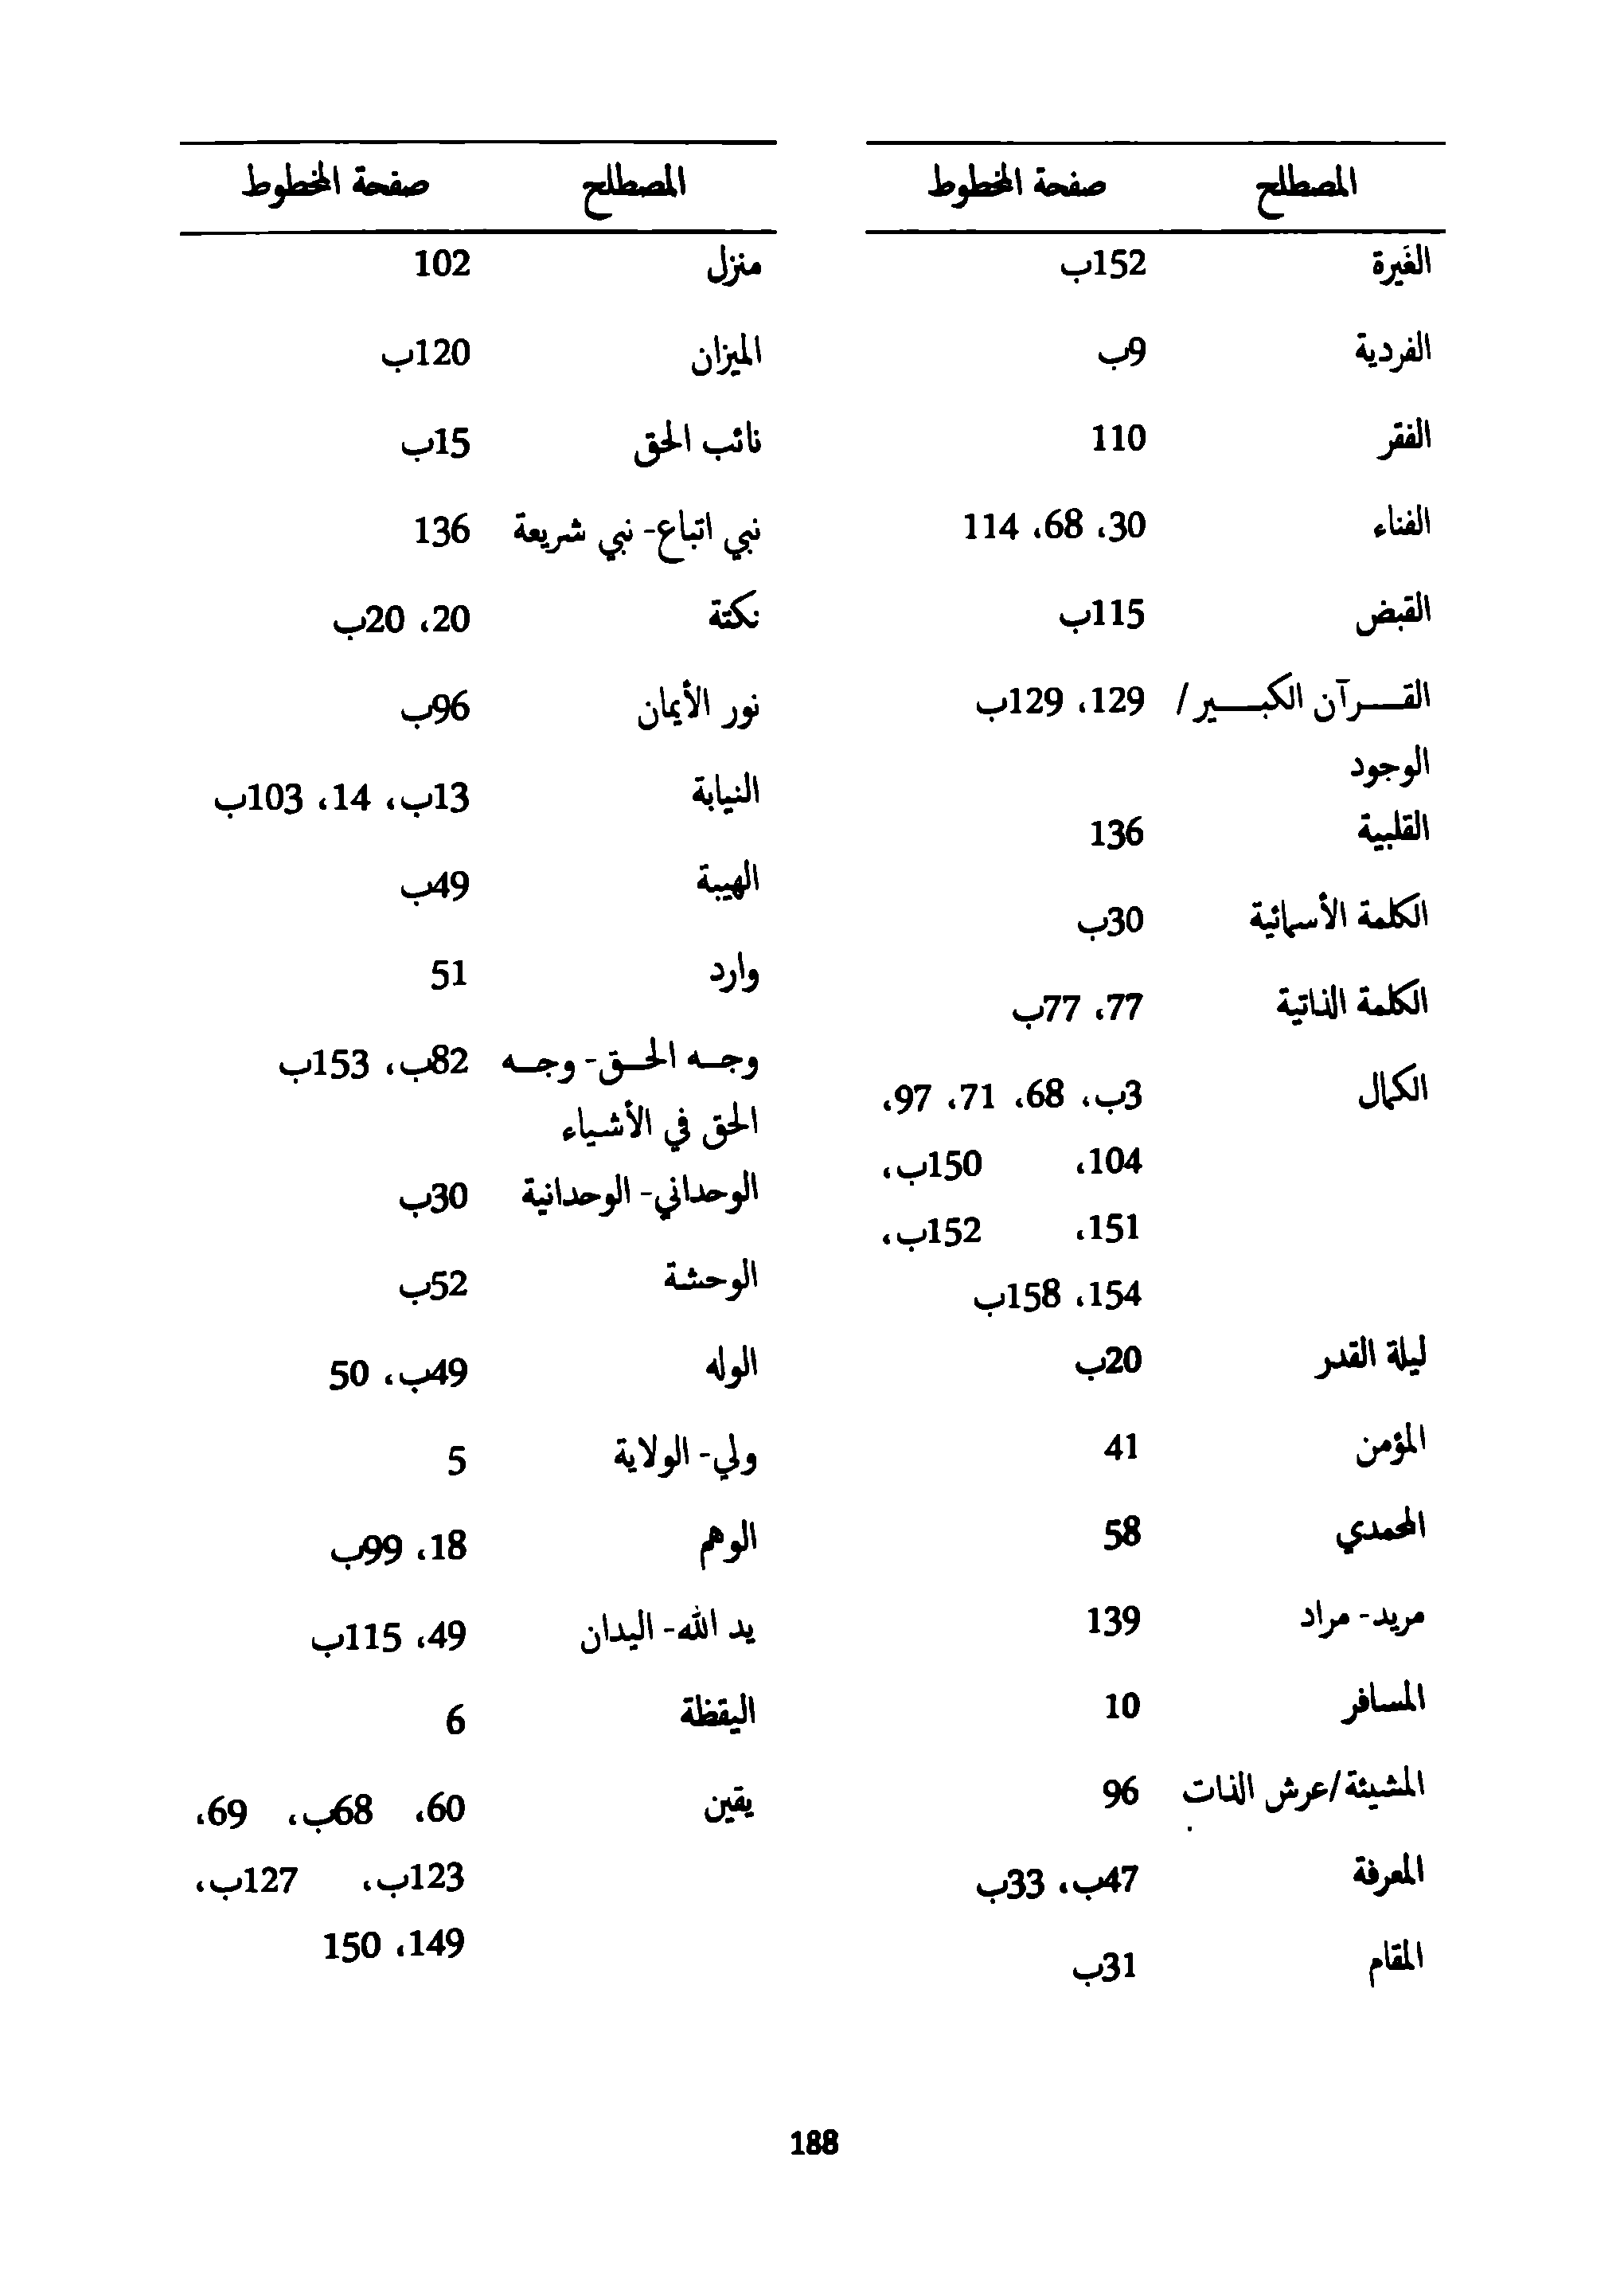 المصطلح صفحة المخطوط
الغَيرة 152ب
الفردية 9ب
الفقر 110
الفناء 30، 68، 114
القبض 115ب
القرآن الكبير/ 129، 129ب
الوجود
القلبية 136
الكلمة الأسمائية 30ب
الكلمة الذاتية 77، 77ب
الكمال 3ب، 68، 71، 97،
104، 150ب،
151، 152ب،
154، 158ب
ليلة القدر 20ب
المؤمن 41
المحمدي 58
مريد- مراد 139
المسافر 10
المشيئة/عرش الذات 96
المعرفة 47ب، 33ب
المقام 31ب
المصطلح صفحة المخطوط
منزل 102
الميزان 120ب
نائب الحق 15ب
نبي اتباع- نبي شريعة 136
نكتة 20، 20ب
نور الأيمان 96ب
النيابة 13ب، 14، 103ب
الهيبة 49ب
وارد 51
وجه الحق- وجه 82ب، 153ب
الحق في الأشياء
الوحداني- الوحدانية 30ب
الوحشة 52ب
الوله 49ب، 50
ولي- الولاية 5
الوهم 18، 99ب
يد الله- اليدان 49، 115ب
اليقظة 6
يقين 60، 68ب، 69،
123ب، 127ب،
149، 150
188